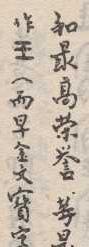 和最高荣誉等
作王（而早金文寶字